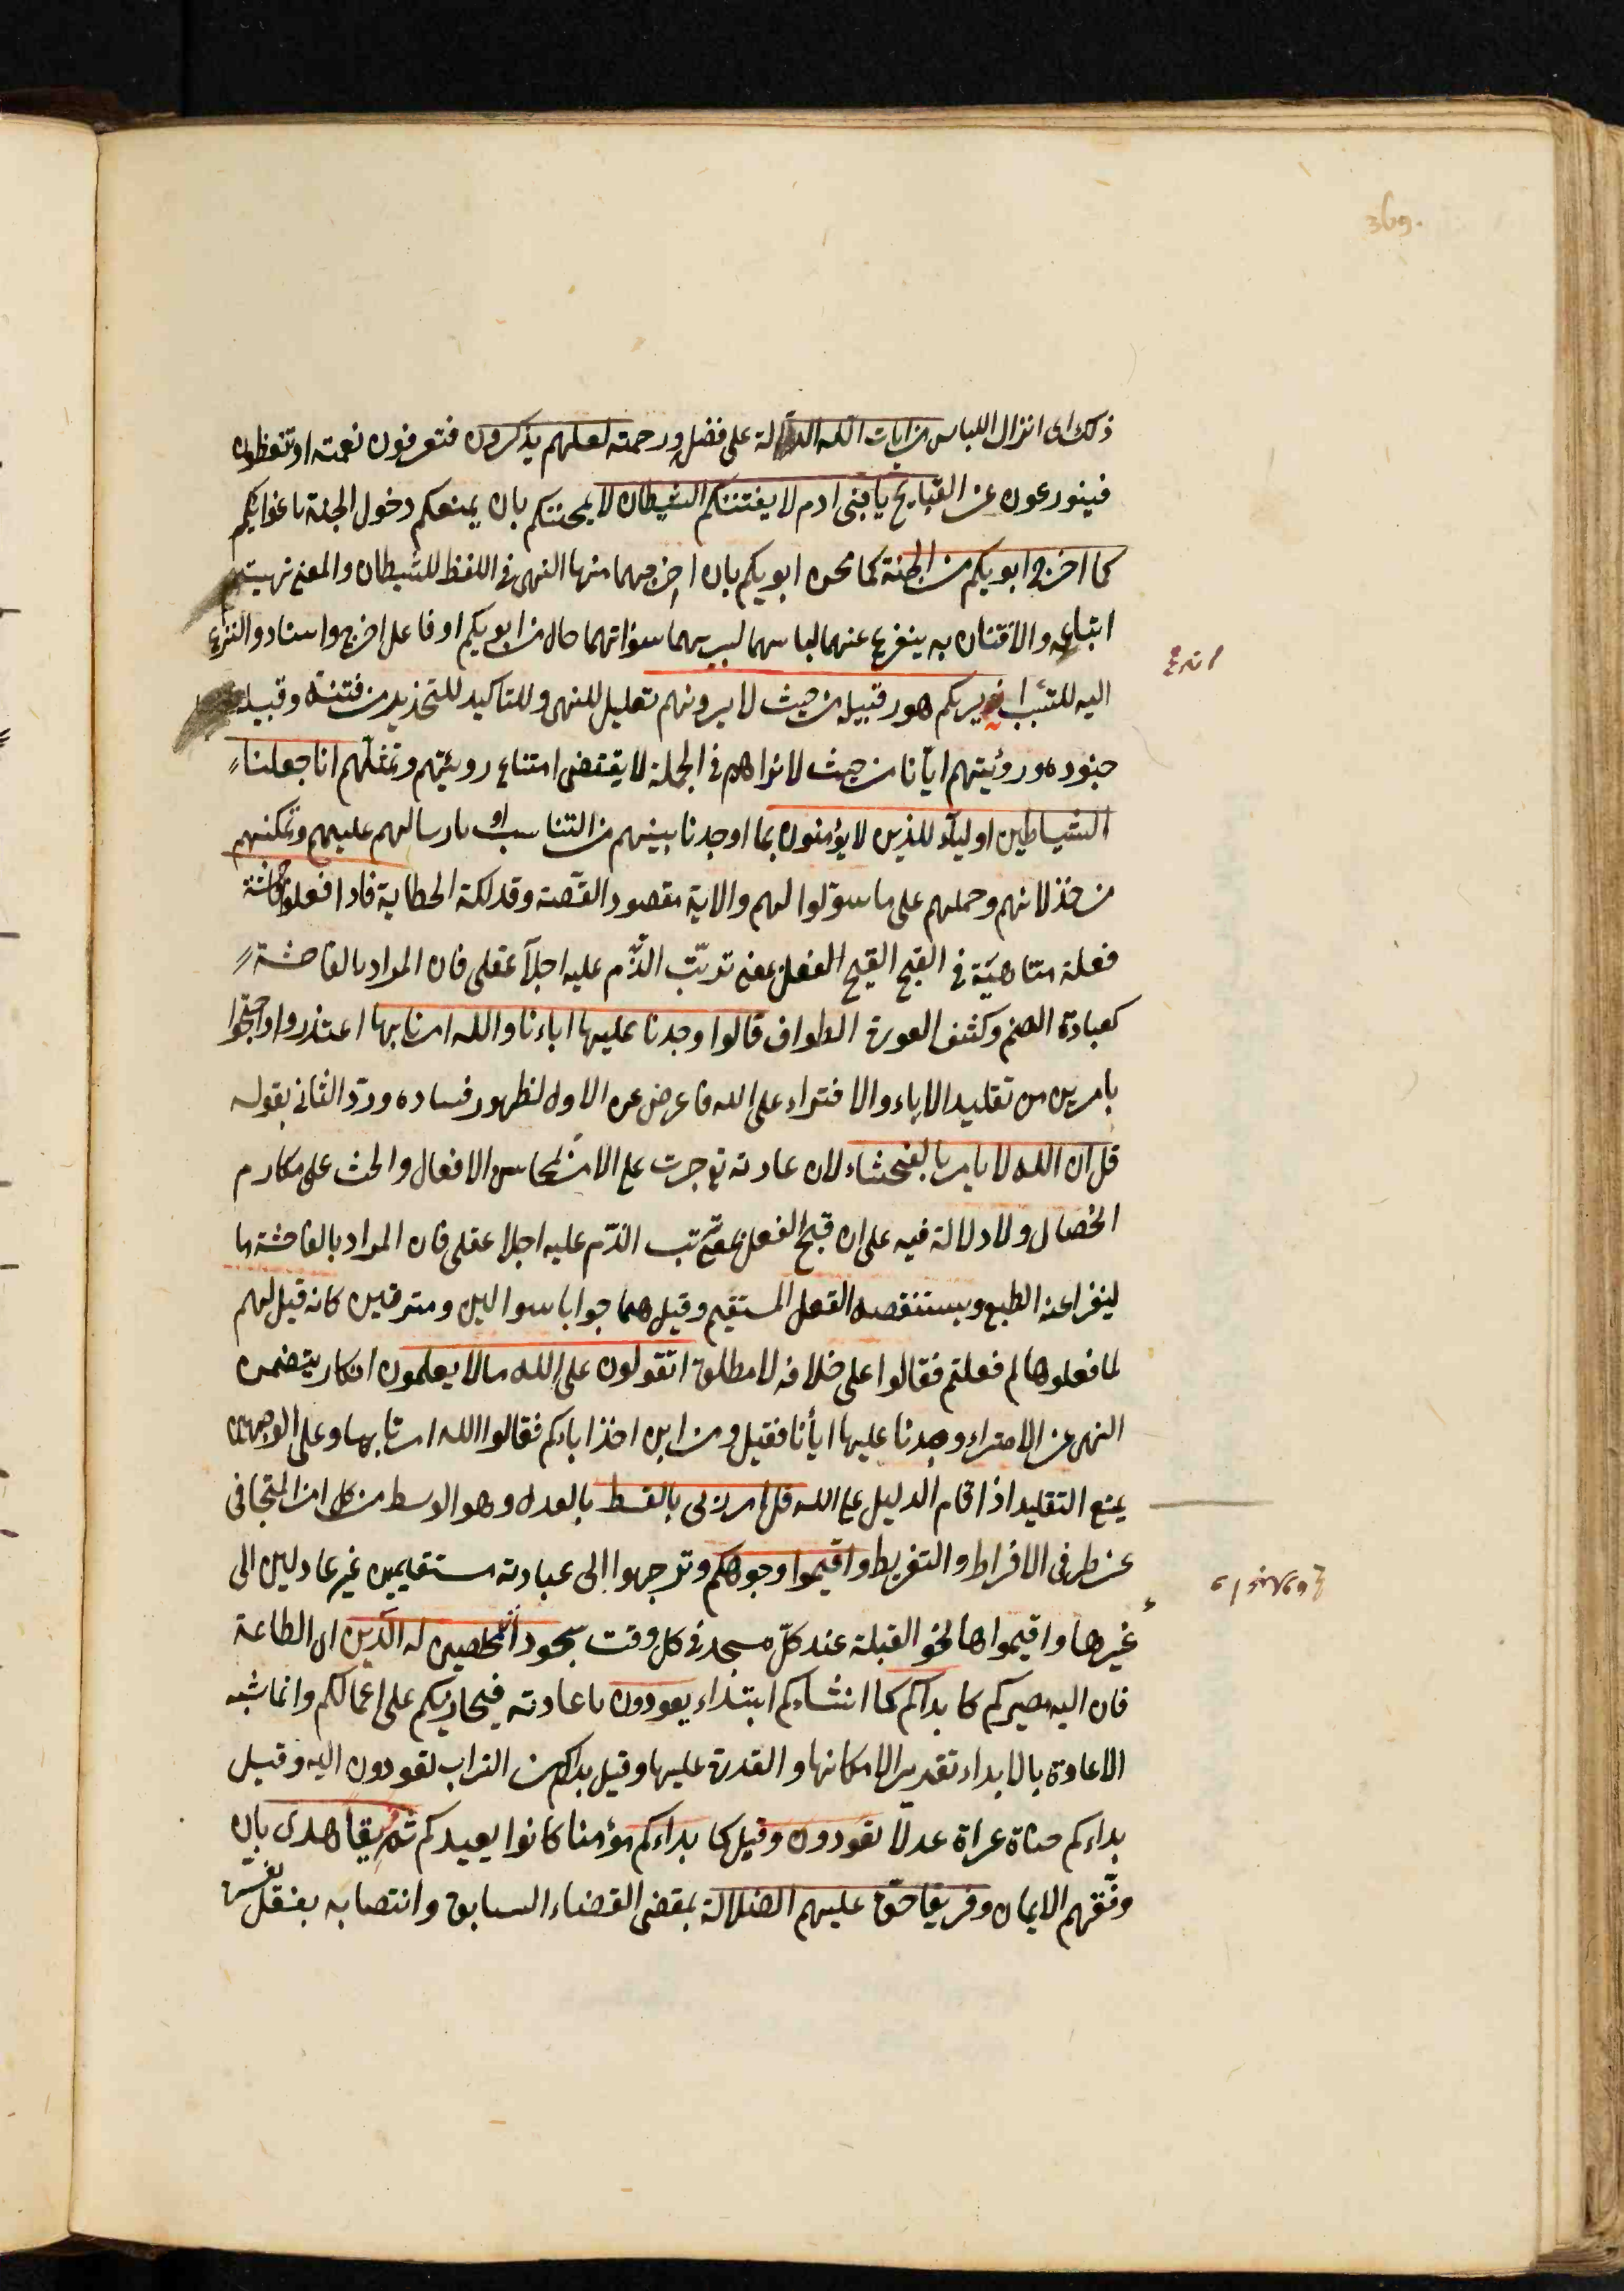 369.
ذلك اى انزال اللباس من ايات الله الدالة على فضله ورحمته لعلهم يذكرون فتعرفون نعمته او تتعظون
فيتورعون عن القبايح يا بنى ادم لا يفتننكم الشيطان لا يمحننكم بان يمنعكم دخول الجنة باغوائكم
كما اخرج ابويكم من الجنة كما محن ابويكم بان اخرجهما منها النهى فى اللفظ للشيطان والمعنى نهيهم
اتباعه والافتتان به ينزع عنهما لباسهما ليريهما سواتهما حال من ابويكم او فاعل اخرج واسناد النزع
اليه للتسبب انه يريكم هو وقبيله من حيث لا يرونهم تعليل للنهى وللتاكيد للتحذير من فتنته وقبيله
جنوده ورؤيتهم ايانا من حيث لا نراهم فى الجملة لا يقتضى امتناع رويتهم وتمثلهم انا جعلنا
الشياطين اولياء للذين لا يؤمنون بما اوجدنا بينهم من التناسب او بارسالهم عليهم وتمكنهم
من خذلانهم وحملهم على ما سوّلوا لهم والاية مقصود القصّة وفذلكة الحطاية فاذا فعلوا فاحشة
فعلة متناهية فى القبح القبح الفعل بمعنى ترتّب الذّم عليه اجلا عقلى فان المراد بالفاحشة
كعبادة الصنم وكشف العورة الطواف قالوا وجدنا عليها اباءنا والله امرنا بها اعتذروا واحتجوا
بامرين من تقليد الاباء والافتراء على الله فاعرض عن الاول لظهور فساده وردّ الثانى بقوله
قل ان الله لا يامر بالفحشاء لان عادته جرت على الامر بمحاسن الافعال والحث على مكارم
الخصال ولا دلالة فيه على ان قبح الفعل بمعنى ترتب الذّم عليه اجلا عقلى فان المراد بالفاحشة ما
لينفر عنه الطبع ويستنقصه العقل المستقيم وقيل هما جوابا سوالين ومترقبين كانه قيل لهم
لما فعلوها لم فعلتم فقالوا على خلافه لا مطلق اتقولون على الله ما لا يعلمون انكار يتضمن
النهى عن الافتراء وجدنا عليها اباءنا فقيل ومن اين اخذ اباءكم فقالوا الله امرنا بها وعلى الوجهين
يمنع التقليد اذا قام الدليل على الله قل امر ربى بالقسط بالعدل وهو الوسط من كل امر المتجافى
عن طرفى الافراط والتفريط واقيموا وجوهكم وتوجهوا الى عبادته مستقيمين غير عادلين الى
غيرها واقيموها نحو القبلة عند كلّ مسجد فى كل وقت سجود مخلصين له الدين اى الطاعة
فان اليه مصيركم كما بداكم كما انشاءكم ابتداء يعودون باعادته فيجازيكم على اعمالكم وانما شبه
الاعادة بالابداء تقديرا لامكانها والقدرة عليها وقيل بداكم من التراب تعودون اليه وقيل
بداءكم حفاة عراة عدلا تعودون وقيل كما بداءكم مؤمنا كانوا يعيدكم فريقا هدى بان
وفّقهم الايمان وفريقا حقّ عليهم الضلالة بمقضى القضاء السابق وانتصابه بفعل